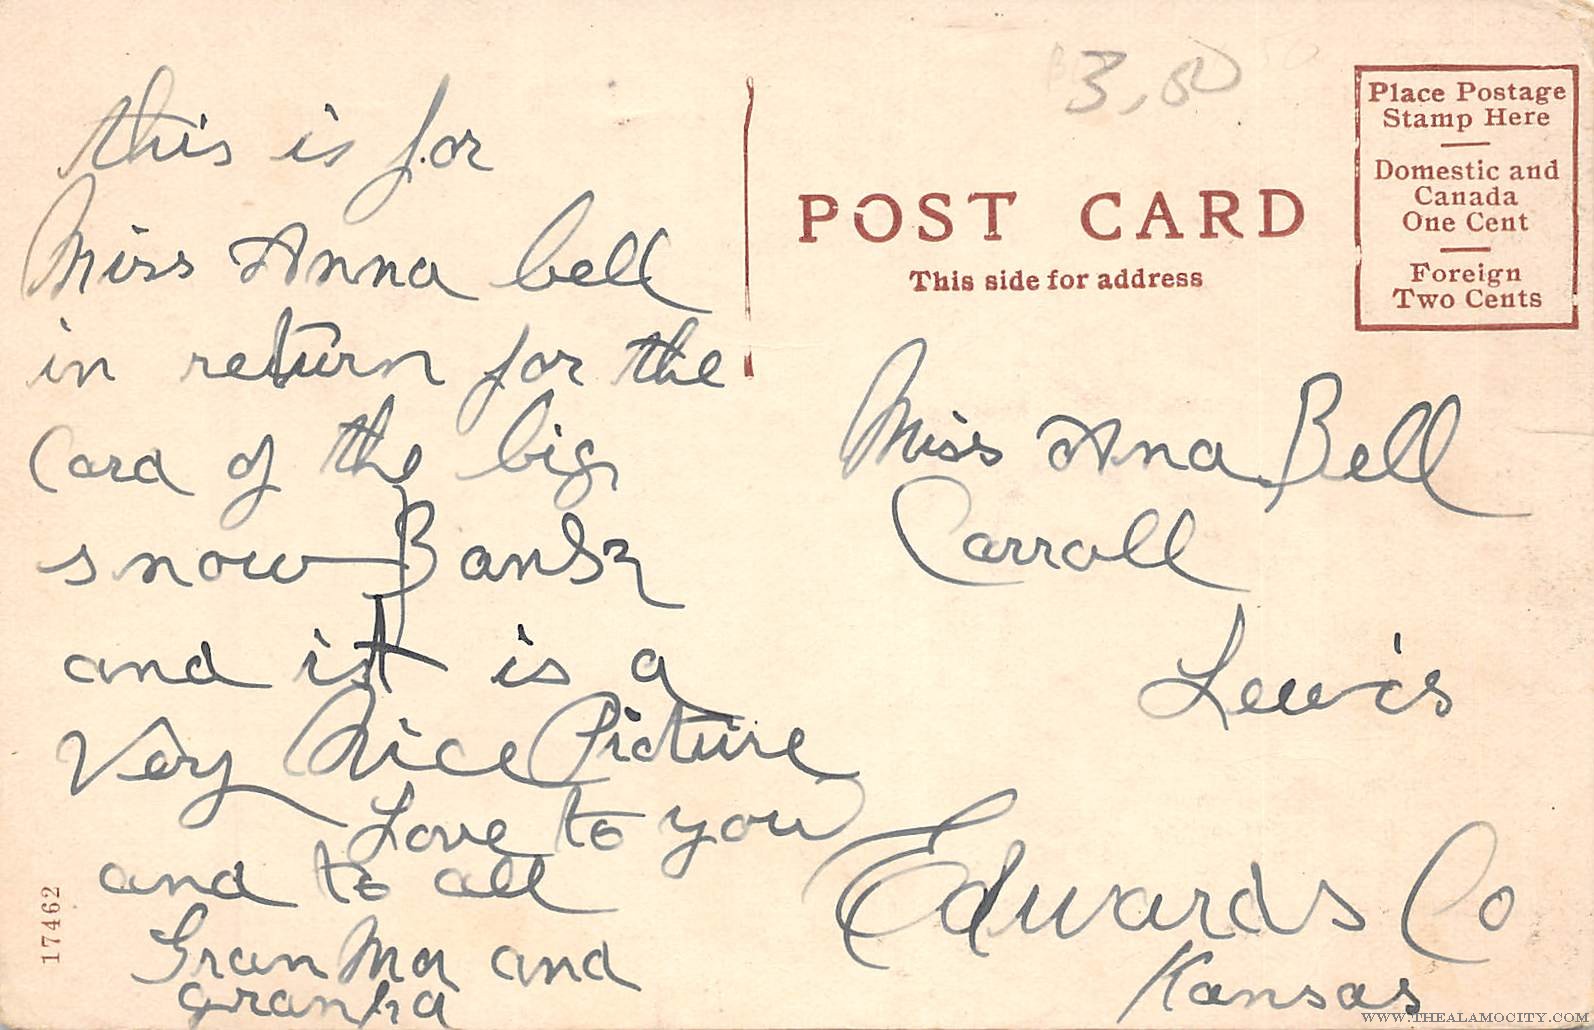 this is for
Miss Anna bell
in return for the
Card of the big
snow Bank
and ist is a
Very Nice Picture
Love to you
and to all
GranMa and
granpa
17462
3,50
POST CARD
This side for address
Place Postage
Stamp Here
Domestic and
Canada
One Cent
Foreign
Two Cents
Miss Anna Bell
Carroll
Lewis
Edwards Co
Kansas
WWW.THEALAMOCITY.COM